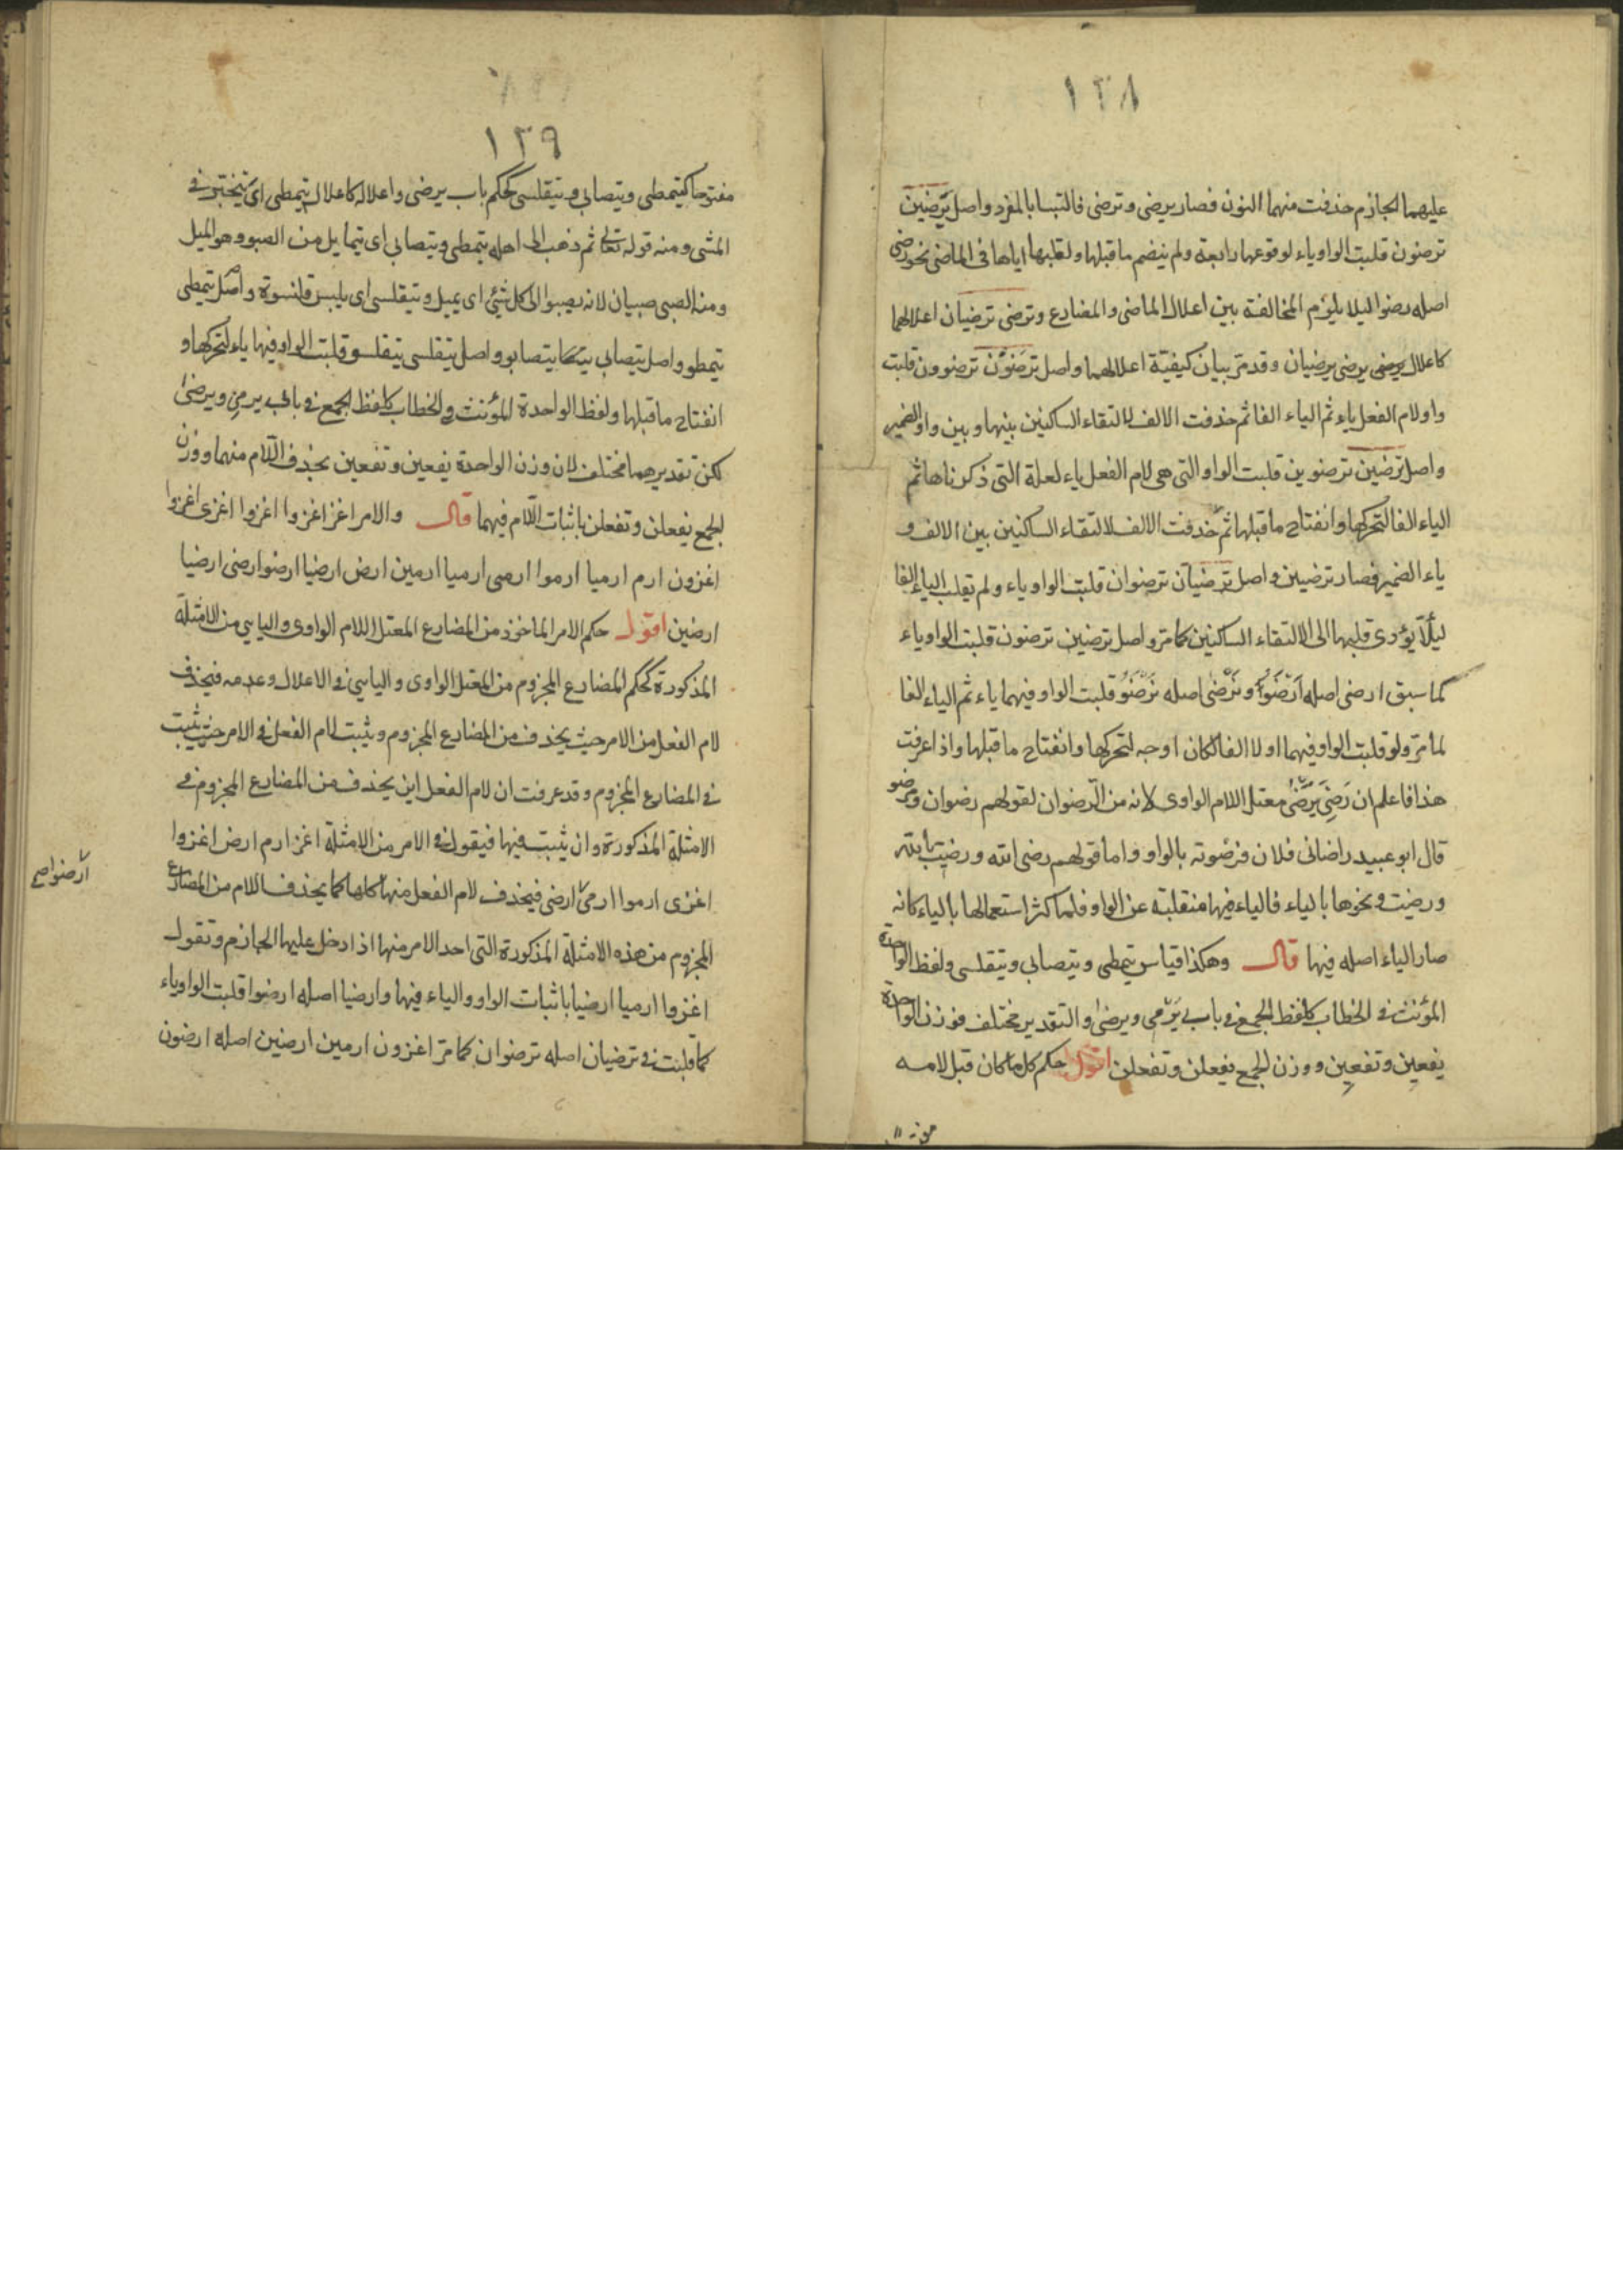 ١٣٨
عليهما الجازم حذفت منهما النون فصار يرضى وترضى فالتبسا بالمفرد واصل يرضين
ترضون قلبت الواو ياء لوقوعها رابعة ولم ينضم ما قبلها ولقلبها اياها فى الماضى نحو رضى
اصله رضوا ليلا يلزم المخالفة بين اعلال الماضى والمضارع وترضى ترضيان اعلالهما
كاعلال يرضى يرضى يرضيان وقد مر بيان كيفية اعلالهما واصل ترضون ترضوون قلبت
واو لام الفعل ياء ثم الياء الفا ثم حذفت الالف لالتقاء الساكنين بينها وبين واو الضمير
واصل ترضين ترضوين قلبت الواو التى هى لام الفعل ياء لعلة التى ذكرناها ثم
الياء الفا لتحركها وانفتاح ما قبلها ثم حذفت الالف لالتقاء الساكنين بين الالف و
ياء الضمير فصار ترضين واصل ترضيان ترضوان قلبت الواو ياء ولم تقلب الياء الفا
ليلا يؤدى قلبها الى الالتقاء الساكنين كما مر واصل ترضين ترضون قلبت الواو ياء
كما سبق ارضى اصله اَرْضَوُ ونَرْضى اصله نَرْضَوُ قلبت الواو فيهما ياء ثم الياء الفا
لما مر ولو قلبت الواو فيهما اولا الفا لكان اوجه لتحركها وانفتاح ما قبلها واذا عرفت
هذا فاعلم ان رَضِىَ يَرْضىٰ معتل اللام الواوى لانه من الرضوان لقولهم رضوان ومرضو
قال ابو عبيد راضانى فلان فرضوته بالواو واما قولهم رضى الله ورضيت بالله
ورضيت ونحوها بالياء فالياء فيها منقلبة عن الواو فلما كثر استعمالها بالياء كانه
صار الياء اصله فيها قال وهكذا قياس يتمطى ويتصابى ويتقلسى ولفظ الواحدة
المؤنث فى الخطاب كلفظ الجمع فى باب يَرْمى ويرضىٰ والتقدير مختلف فوزن الواحدة
يفعين وتفعين ووزن الجمع يفعلن وتفعلن اقول حكم كل ما كان قبل لامه
١٣٩
مفتوحا كيتمطى ويتصابى ويتقلسى كحكم باب يرضى واعلاله كاعلال يتمطى اى يتبختر فى
المشى ومنه قوله تعالى ثم ذهب الى اهله يتمطى ويتصابى اى يتمايل من الصبو وهو الميل
ومنه الصبى صبيان لانه يصبوا الى كل شئ اى يميل ويتقلسى اى يلبس قلنسوة واصل يتمطى
يتمطو واصل يتصابى يتصابو واصل يتقلسى يتقلسو قلبت الواو فيها ياء لتحركها و
انفتاح ما قبلها ولفظ الواحدة المؤنث فى الخطاب كلفظ الجمع فى بابى يرمى ويرضىٰ
لكن تقديرهما مختلف لان وزن الواحدة يفعين وتفعين بحذف اللام منهما ووزن
الجمع يفعلن وتفعلن باثبات اللام فيهما قال والامر اغز اغزوا اغزوا اغزى اغزوا
اغزون ارم ارميا ارموا ارمى ارميا ارمين ارض ارضيا ارضوا ارضى ارضيا
ارضين اقول حكم الامر الماخوذ من المضارع المعتل اللام الواوى والياسى من الامثلة
المذكورة كحكم المضارع المجزوم من المعتل الواوى والياسى فى الاعلال وعدمه فيحذف
لام الفعل من الامر حيث يحذف من المضارع المجزوم ويثبت لام الفعل فى الامر حيث يثبت
فى المضارع المجزوم وقد عرفت ان لام الفعل اين يحذف من المضارع المجزوم فى
الامثلة المذكورة وان يثبت فيها فيقول فى الامر من الامثلة اغز ارم ارض اغزوا
اغزى ارموا ارمى ارضى فيحذف لام الفعل منها كلها كما يحذف اللام من المضارع
ارضوا صح
المجزوم من هذه الامثلة المذكورة التى احد الامر منها اذا دخل عليها الجازم وتقول
اغزوا ارميا ارضيا باثبات الواو والياء فيها وارضيا اصله ارضوا قلبت الواو ياء
كما قلبت فى ترضيان اصله ترضوان كما مر اغزون ارمين ارضين اصله ارضون